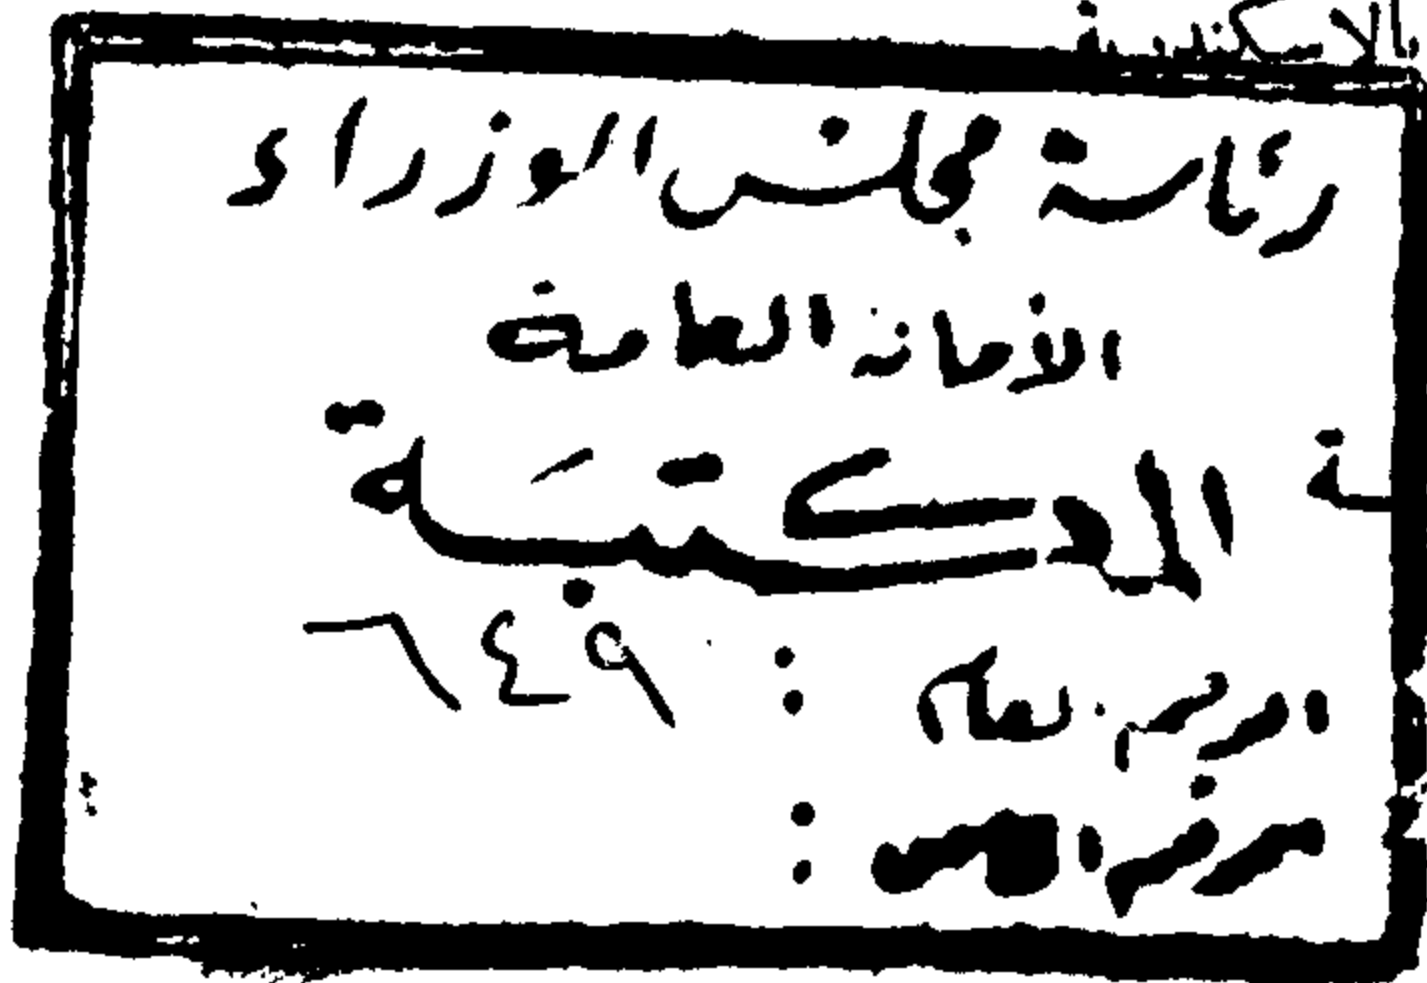 بالاسكندرية
رئاسة مجلس الوزراء
الأمانة العامة
المكتبة
الرقم العام : ٦٤٩
رقم :